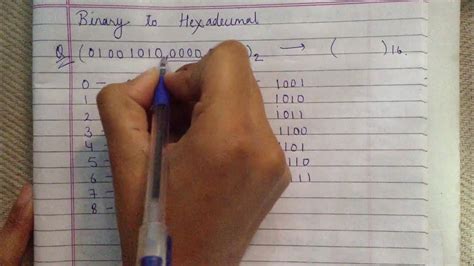 Binary to Hexadecimal
Q (01001010.0000 )2 → ( )16
0 - 1001
1 - 1010
2 - 1011
3 - 1100
4 - 1101
5 - 110
6 11
7 -
8 -